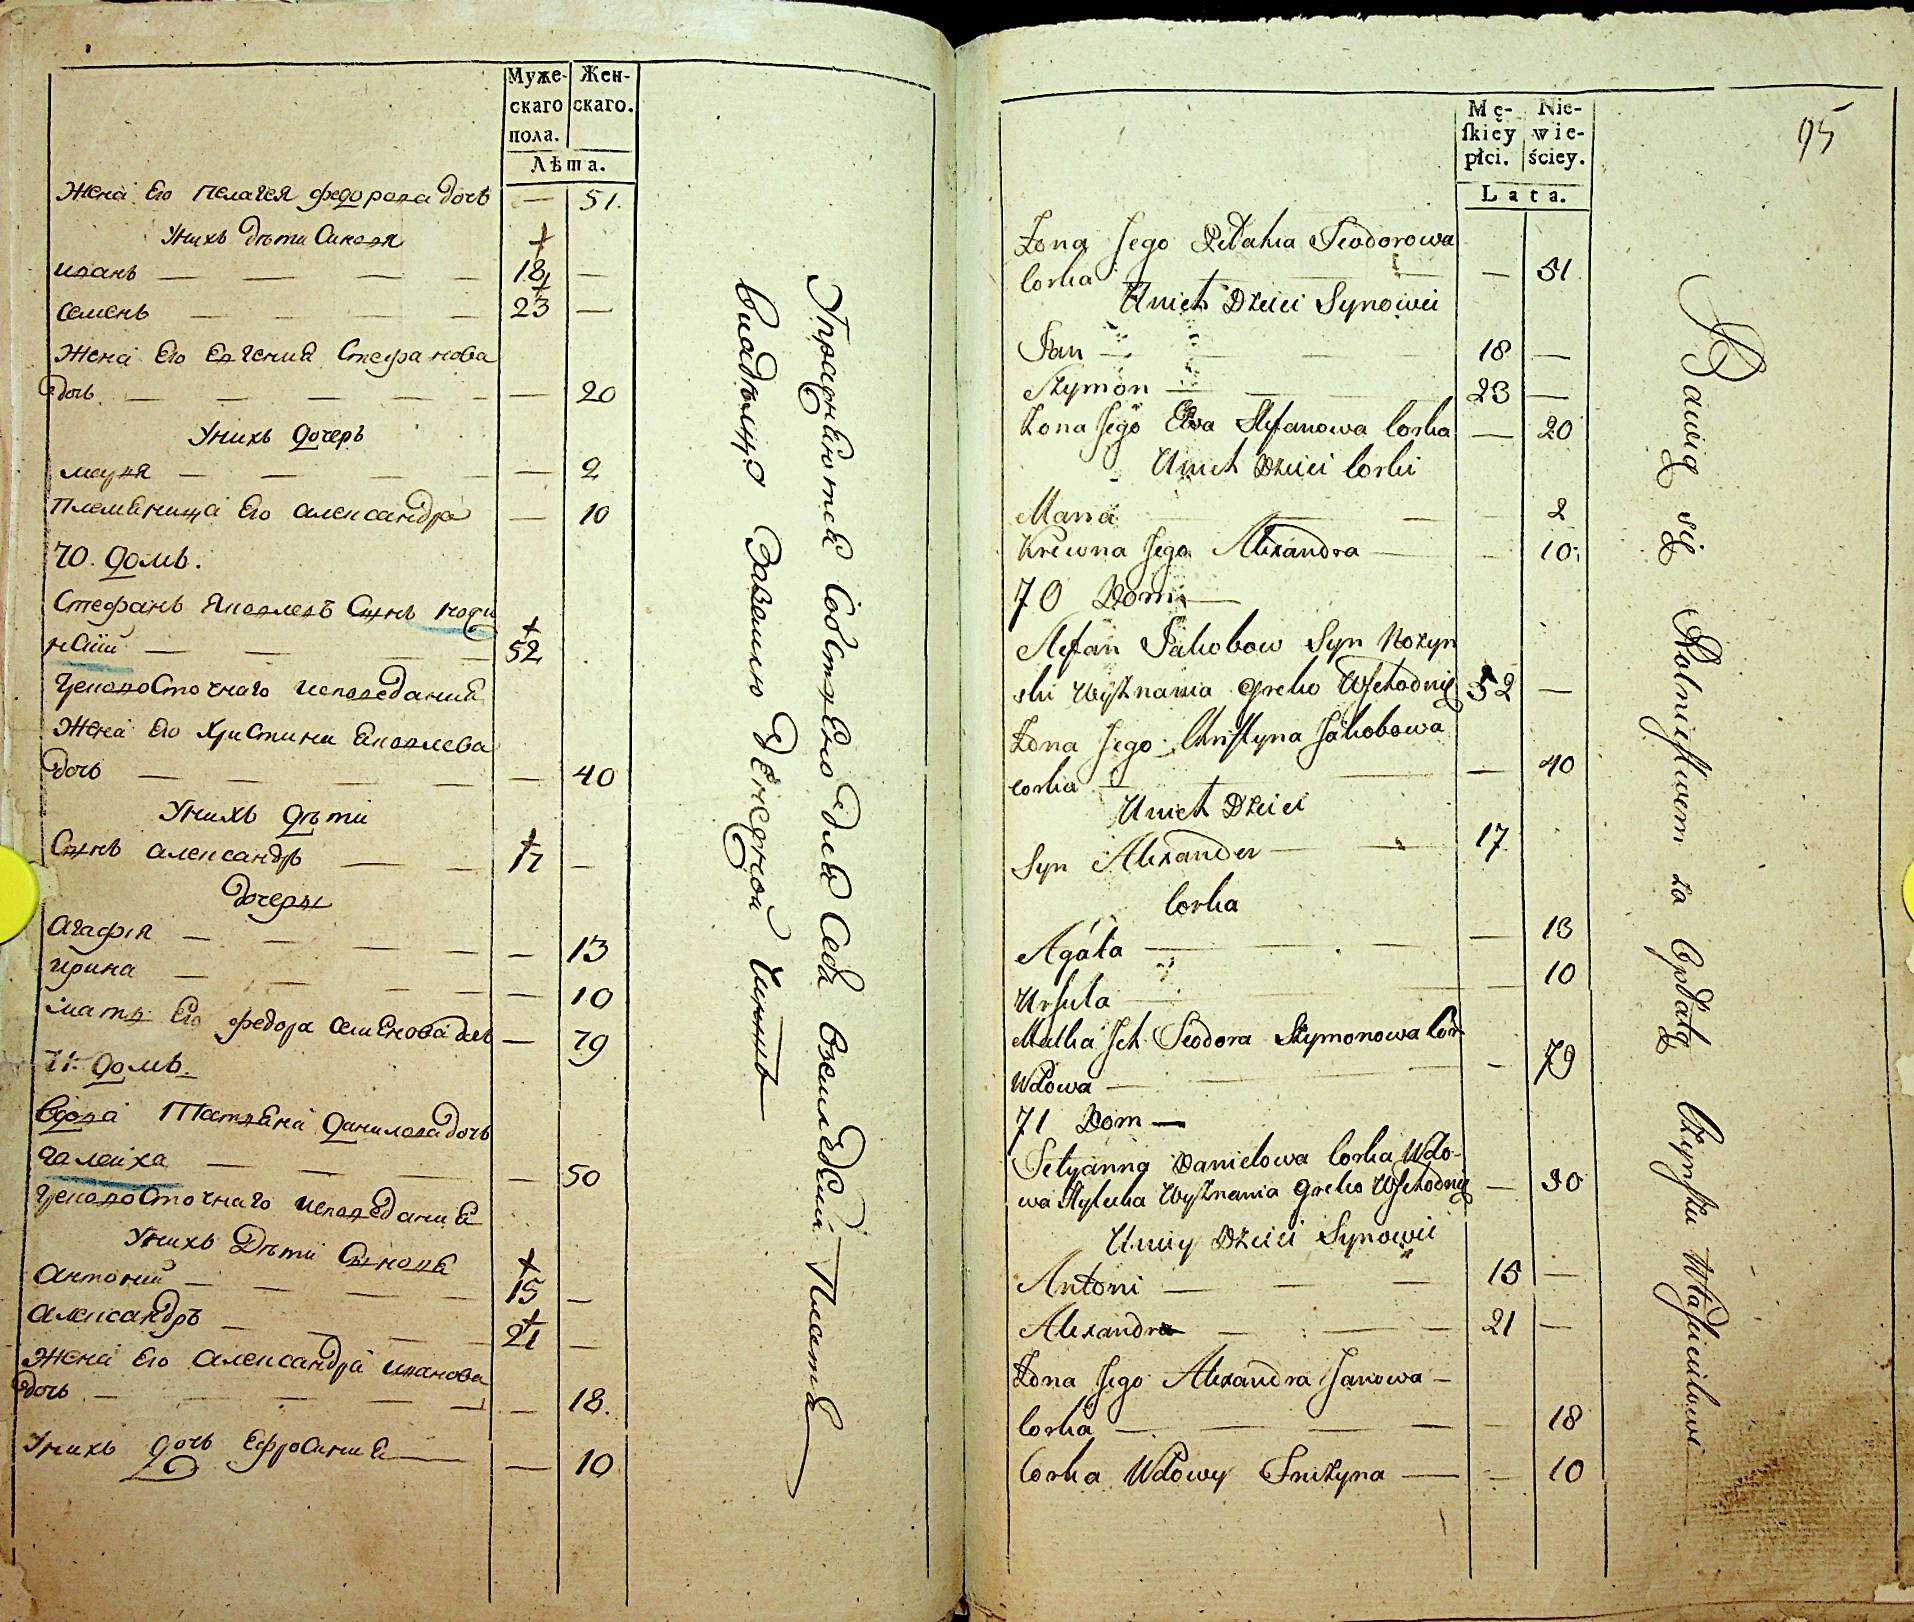 Муже-
скаго
пола.
Жен-
скаго.
Лѣта.
Жена Его Пелагея Федорова дочь — 51.
Унихъ дѣти Сыновя
иванъ — — — — 18 —
семенъ — — — — 23 —
Жена Его Евгения Стефанова
дочь — — — — — 20
Унихъ дочерь
марья — — — — 2
Племеница Его александра — 10
70. домъ.
Стефанъ Яковлевъ Сынъ
52
Грековосточнаго исповеданий
Жена Его Христина Яковлева
дочь — — — — 40
Унихъ дѣти
Сынъ александръ — — 17 —
дочеры
агафия — — — — 13
ирина — — — — 10
мать Его федора семенова дочь — 79
71. домъ.
вдова Татьяна данилова дочь
галейха — — — 50
Грековосточнаго исповеданий
Унихъ Дѣти Сыновя
антоний — — — — 15 —
александръ — — — 21 —
Жена Его александра иванова
дочь — — — — 18.
Унихъ дочь Ефросиния — — 10
Упражняются Собственно для Себя
Платя
владѣльцу
денежной Чиншъ
95
Mę-
ſkiey
płci.
Nie-
wie-
ściey.
Lata.
Żona Jego Pelahia Teodorowa
Corka — — — 51
Unich Dzieci Synowie
Jan — — — 18 —
Szymon — — 23 —
Żona Jego Ewa Stefanowa Corka — 20
Unich Dzieci Corki
Maria — — — 2
Krewna Jego Alexandra — — 10
70 Dom —
Stefan Jakobow Syn Nozyn
ski Wyznania Greko Wschodnię 52 —
Żona Jego Christyna Jakobowa
corka — — — 40
Unich Dzieci
Syn Alexander — — 17
Corka
Agata — — — 13
Urszula — — — 10
Matka Jch Teodora Szymonowa Cor
Wdowa — — — 79
71 Dom —
Tetyanna Danielowa Corka Wdo-
wa Wyznania Greko Wschodnię — 50
Uniey Dzieci Synowie
Antoni — — — 15 —
Alexandr — — — 21 —
Żona Jego Alexandra Janowa —
Corka — — — 18
Corka Wdowy — — 10
Bawią się Rolnictwem za Opłatą Czynszu Właścicielowi